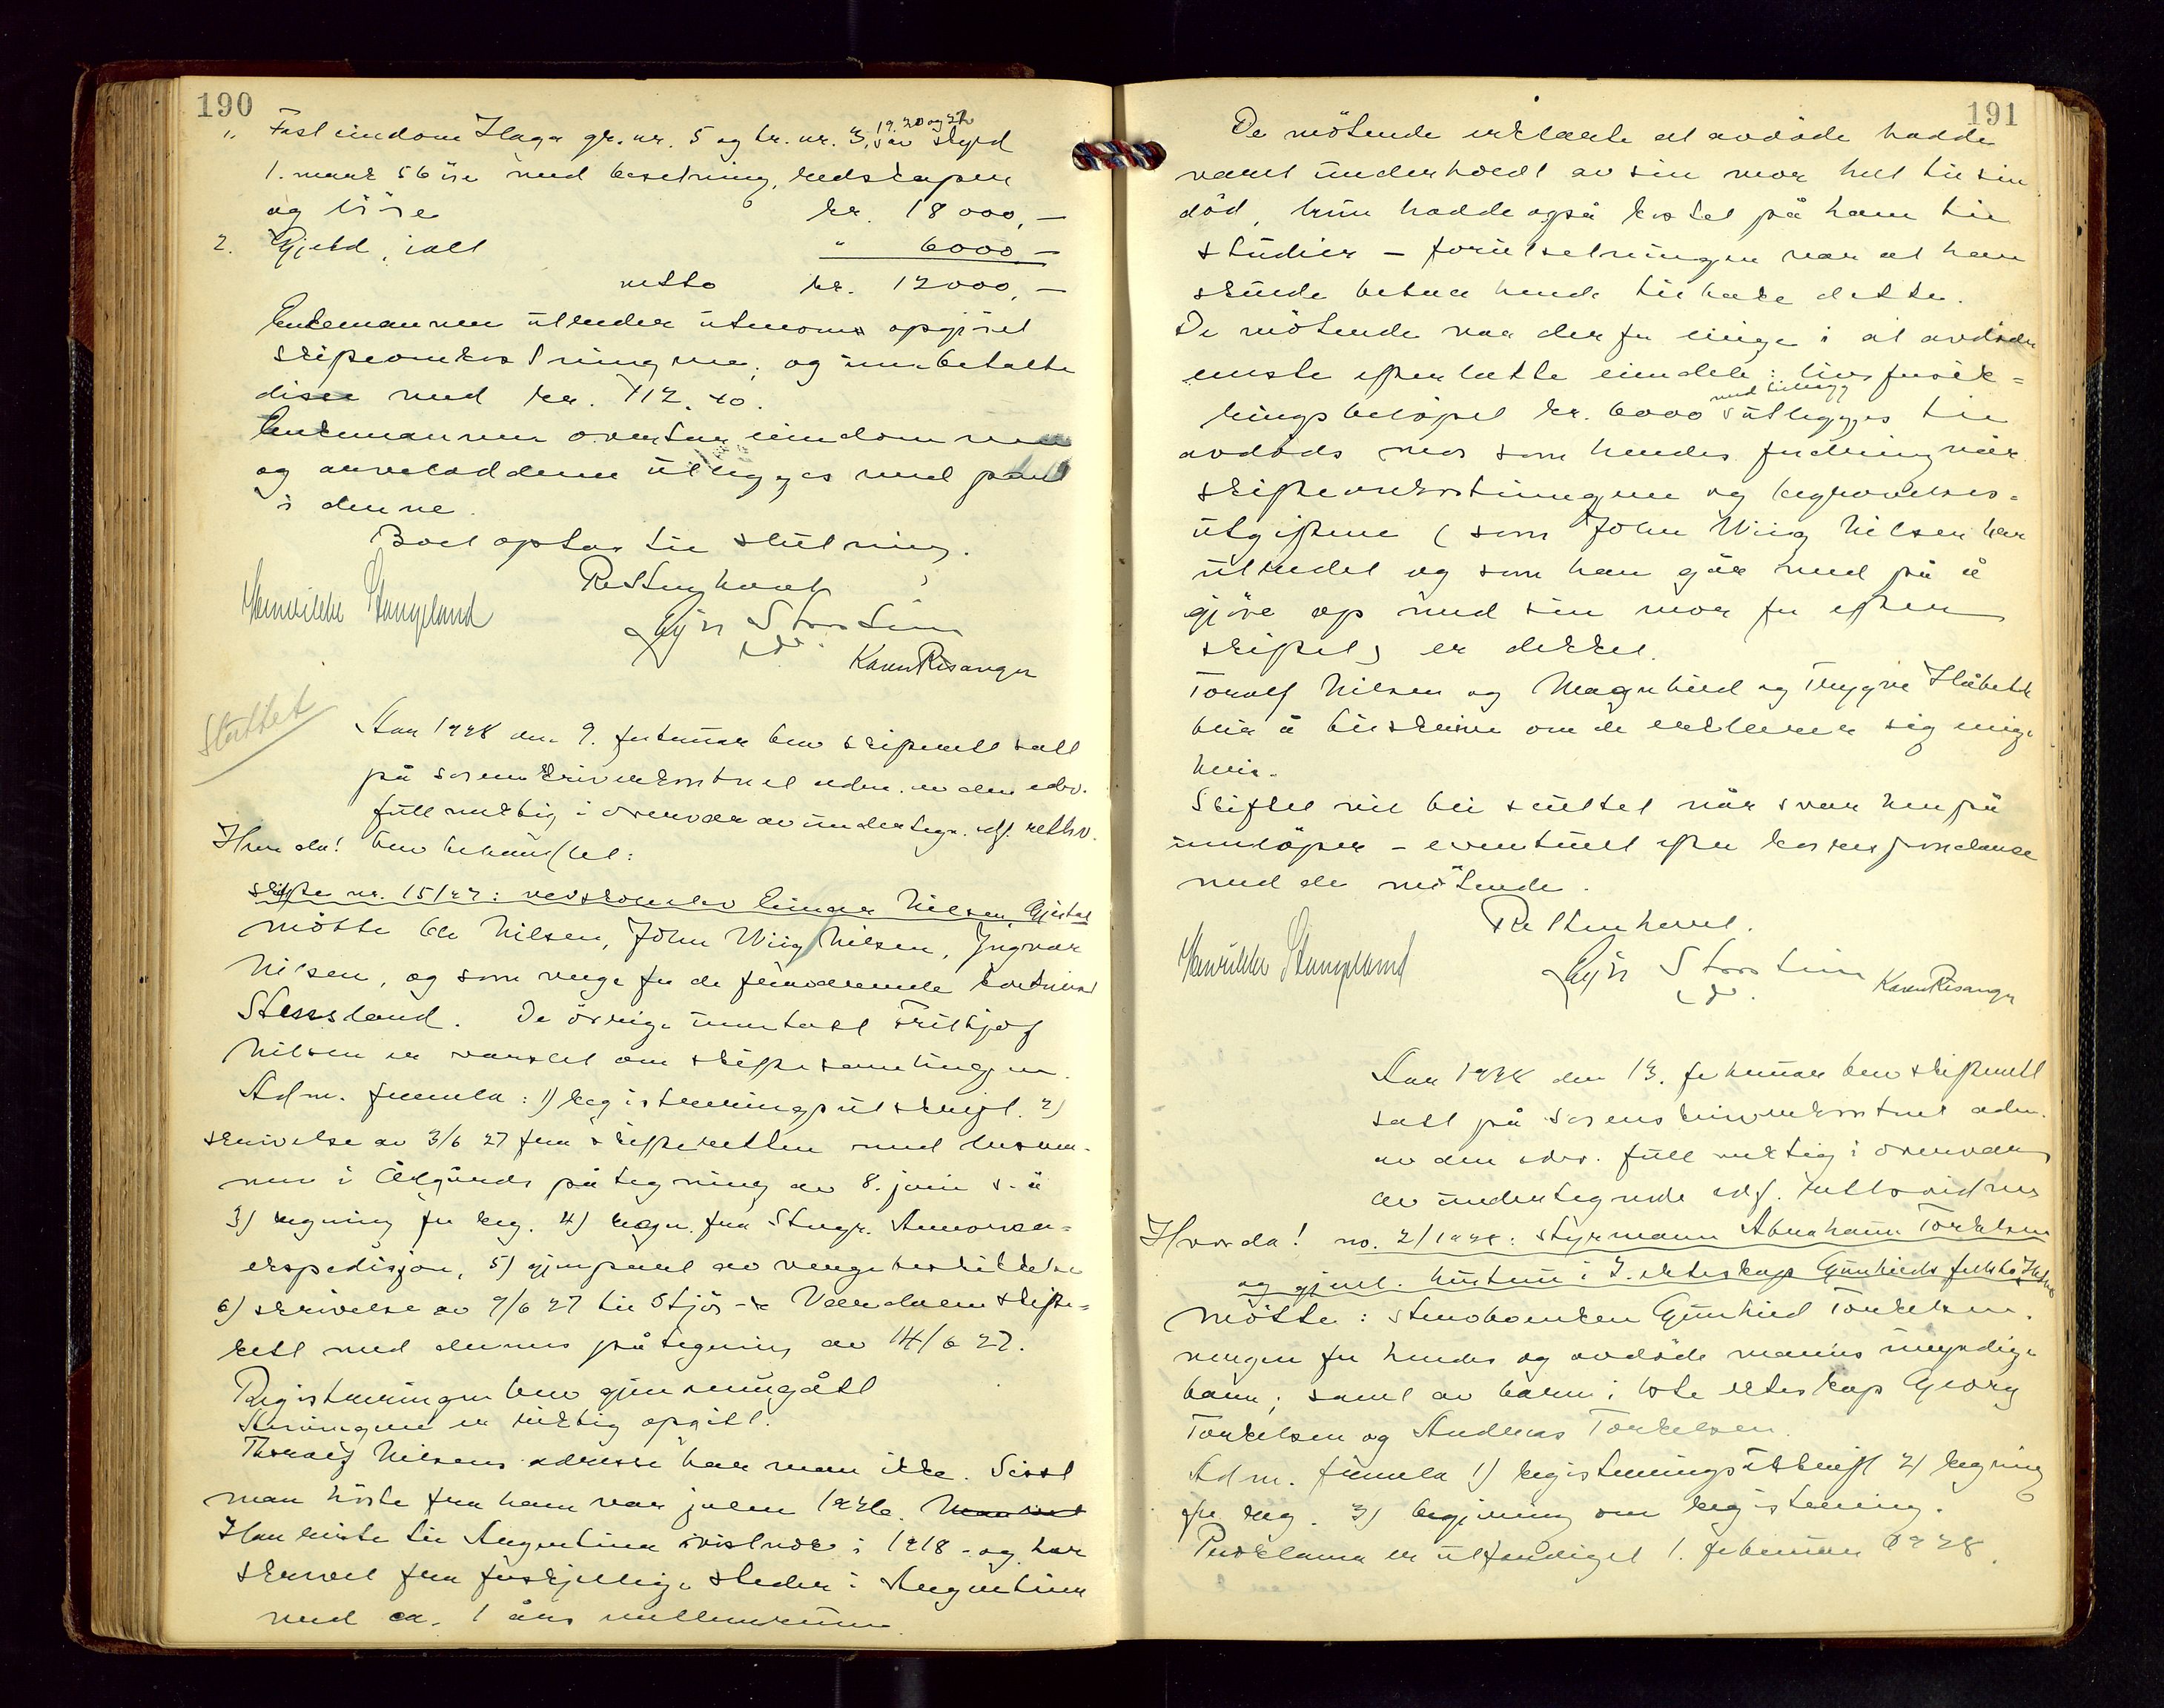 190
" Fast eiendom Haga gr. nr. 5 og br. nr. 3, 19. 20 og 22 av skyld
1. mark 56 øre med besetning, redskaper
og løsøre kr. 18 000,-
2. Gjeld, ialt " 6000,-
netto kr. 12000,-
Enkemannen utreder utenom opgjøret
skifteomkostningene, og innbetalte
disse med kr. 112.40.
Enkemannen overtar eiendommen
og arveloddene utlegges med pant
i denne.
Boet optas til slutning.
Retten hevet
Henrikke Stangeland
Karen Risanger
Sluttet
Aar 1928 den 9. februar blev skifterett satt
på sorenskriverkontoret adm. av den edsv.
fullmektig i overvær av undertegn. edsf. rettsv.
Hvorda! blev behandlet:
skifte nr. 15/27: Einar Nilsen, Gjestal
Møtte Ole Nilsen, John Wiig Nilsen, Ingvar
Nilsen, og som verge for de fraværende
De øvrige unntatt Fritjof
Nilsen er varslet om skiftesamlingen.
Adm. fremla: 1) registreringsutskrift. 2)
skrivelse av 3/6 27 fra skifteretten med lensman-
nen i Ålgårds påtegning av 8. juni s. å
3) regning for reg. 4) regn. fra Stvgr. Annonse-
ekspedisjon, 5) gjenpart av vergebeskikkelse
6) skrivelse av 9/6 27 til Stjør- & Værdalen skifte-
rett med dennes påtegning av 14/6 27.
Registreringen blev gjennemgått
Arvingene er riktig opgitt.
Thoralf Nilsens adresse har man ikke. Sisst
man hørte fra ham var julen 1926. Man vet
Han reiste til Argentina i 1918 - og har
skrevet fra forskjellige steder i Argentina
med ca. 1 års mellemrum.
191
De møtende erklærte at avdøde hadde
vært underholdt av sin mor helt til sin
død, hun hadde også kostet på ham til
studier - forutsetningen var at han
skulde betale hende tilbake dette.
De møtende var derfor enige i at avdødes
eneste efterlatte eiendele: livsforsik-
ringsbeløpet kr. 6000 med tillegg utlegges til
avdødes mor som hendes fordring når
skifteomkostningene og begravelses-
utgiftene (som John Wiig Nilsen har
utredet og som han går med på å
gjøre op med sin mor for efter
skiftet) er dekket.
Toralf Nilsen og Magnhild og Trygve
blir å tilskrive om de erklærer sig enige
heri.
Skiftet vil bli sluttet når svar herpå
innløper - eventuelt efter korrespondanse
med de møtende.
Retten hevet.
Henrikke Stangeland
Karen Risanger
Aar 1928 den 13. februar blev skifterett
satt på sorenskriverkontoret adm.
av den edsv. fullmektig i overvær
av undertegnede edsf. rettsvidner
Hvorda! no. 2/1928: styrmann Abraham Torkelsen
og gjenl. hustru i 2. ekteskap Gunhild
Møtte: Gunhild Torkelsen,
vergen for hendes og avdøde manns umyndige
barn; samt av barn i 1ste ekteskap Georg
Torkelsen og Andreas Torkelsen.
Adm. fremla 1) registreringsutskrift 2) regning
for reg. 3) begjæring om registrering.
Proklama er utferdiget 1. februar 1928.